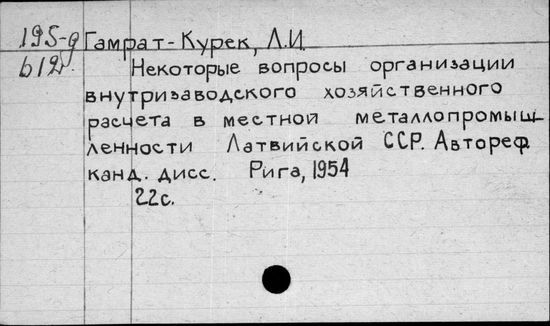 195-д Гамрат-Курек, Л.И.
612. Некоторые вопросы организации
внутризаводского хозяйственного
расчета в местной металлопромыш-
ленности Латвийской ССР. Автореф
канд. дисс. Рига, 1954
22с.